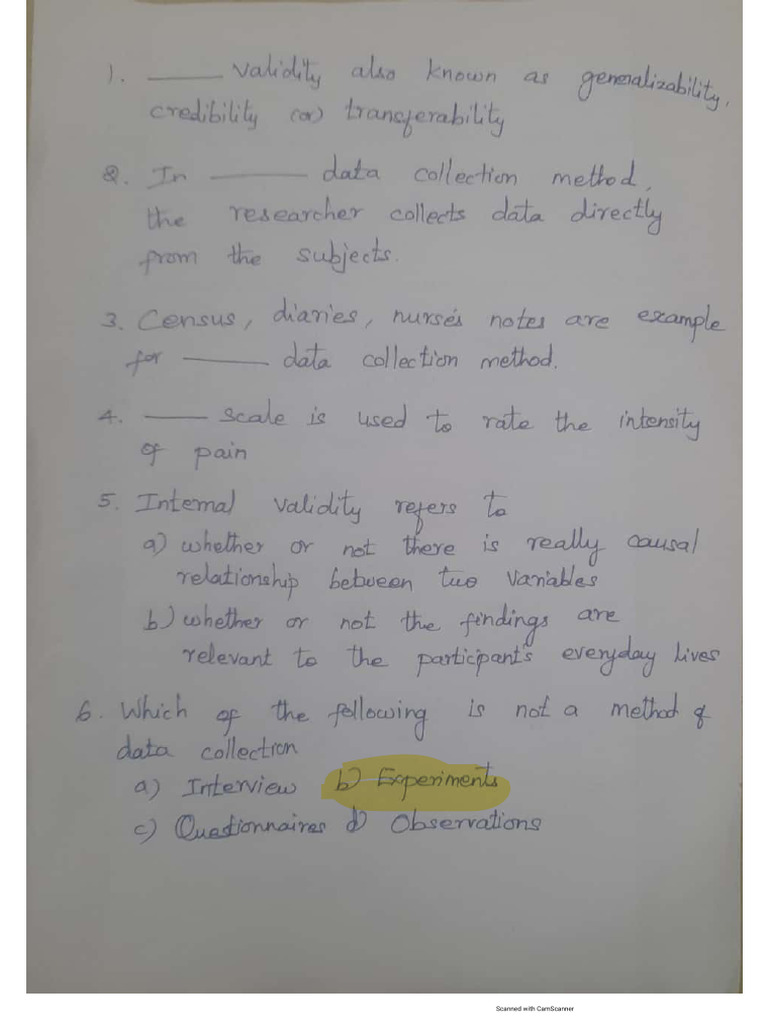 1. ____ validity also known as generalizability,
credibility (or) transferability
2. In ____ data collection method,
the researcher collects data directly
from the subjects.
3. Census, diaries, nurse's notes are example
for ____ data collection method.
4. ____ scale is used to rate the intensity
of pain
5. Internal validity refers to
a) whether or not there is really causal
relationship between two variables
b) whether or not the findings are
relevant to the participant's everyday lives
6. Which of the following is not a method of
data collection
a) Interview b) Experiments
c) Questionnaires d) Observations
Scanned with CamScanner